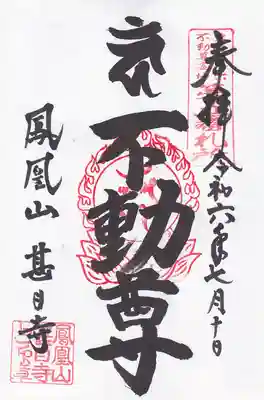 奉拝 令和六年七月十日
不動尊
鳳凰山 甚目寺
鳳凰山